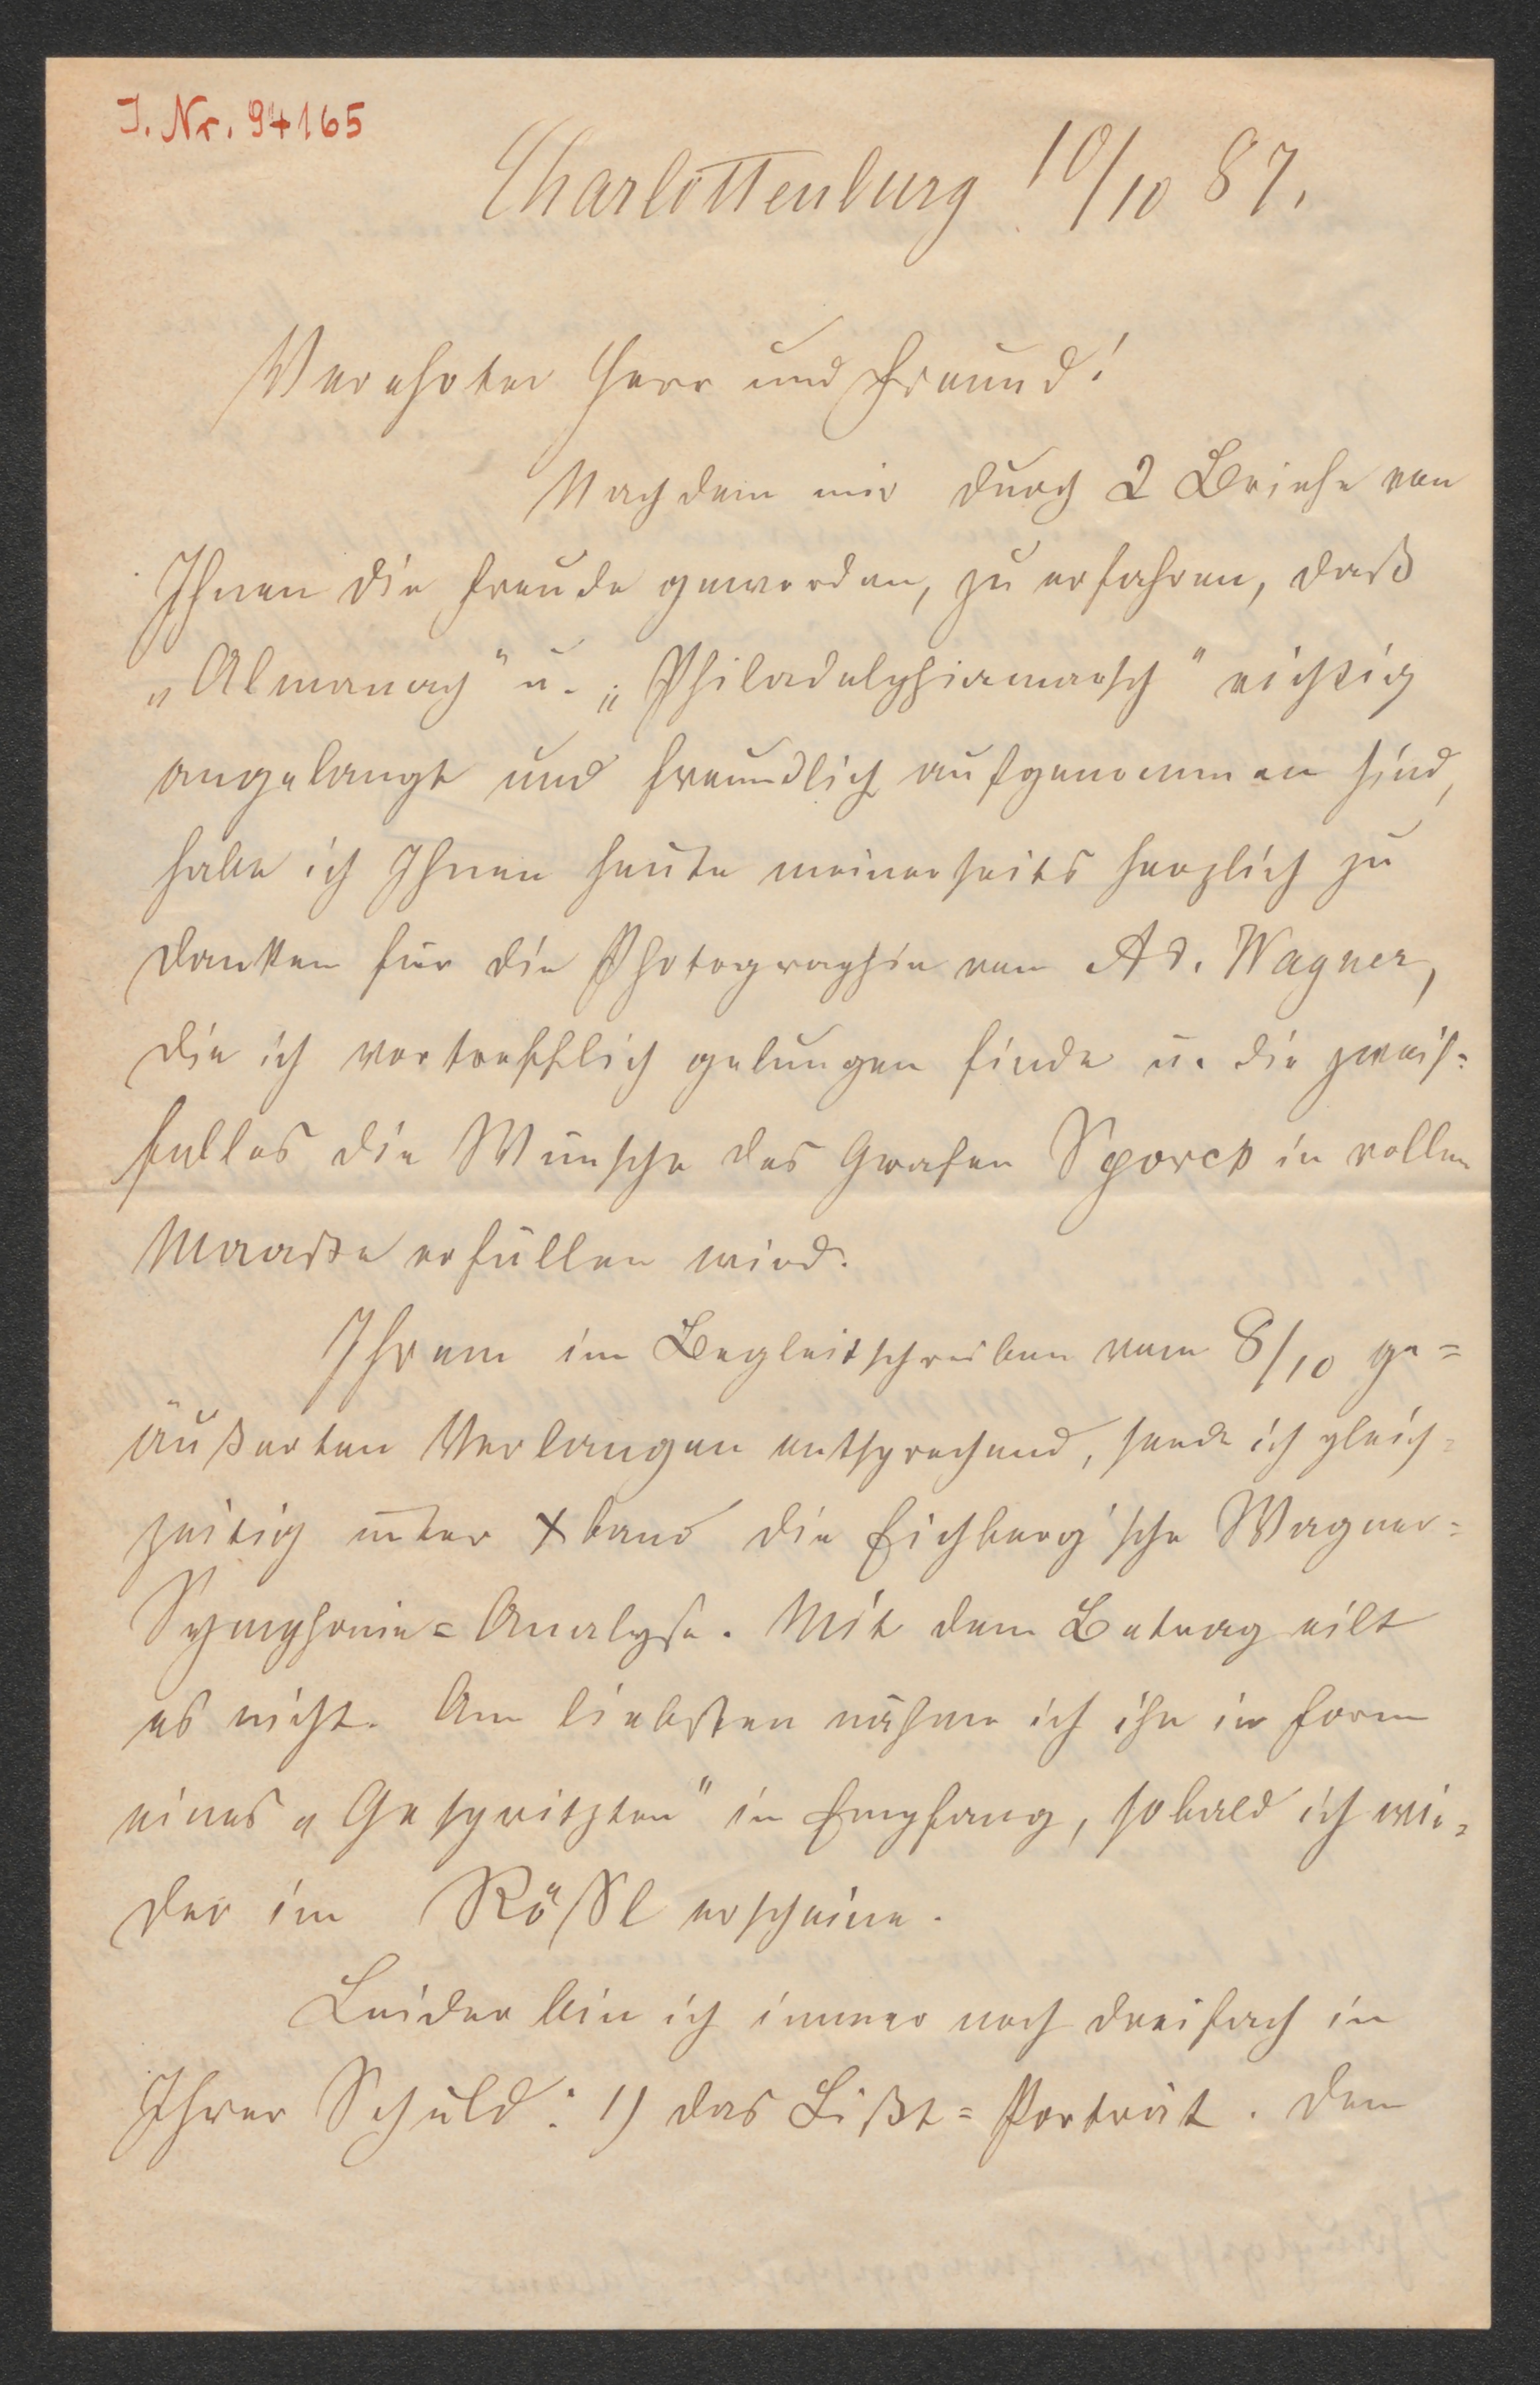 I. Nr. 94165
Charlottenburg 10/10 87.
Verehrter Herr und Freund!
Nachdem mir durch 2 Briefe von
Ihnen die Freude geworden, zu erfahren, daß
„Almanach" u. „Philadelphiamarsch" richtig
angelangt und freundlich aufgenommen sind,
habe ich Ihnen heute meinerseits herzlich zu
danken für die Photographie von Ad. Wagner,
die ich vortrefflich gelungen finde u. die zweif=
fellos die Wünsche des Grafen Sporck in vollem
Maaße erfüllen wird.
Ihrem im Begleitschreiben vom 8/10 ge=
äußerten Verlangen entsprechend, sende ich gleich=
zeitig unter Xband die Eichberg'sche Wagner=
Symphonie=Analyse. Mit dem Betrag eilt
es nicht. Am liebsten nähme ich ihn in Form
eines „Gespritzten" in Empfang, sobald ich wie=
der im Rößl erscheine.
Leider bin ich immer noch dreifach in
Ihrer Schuld: 1) das Lißt=Porträt. Den